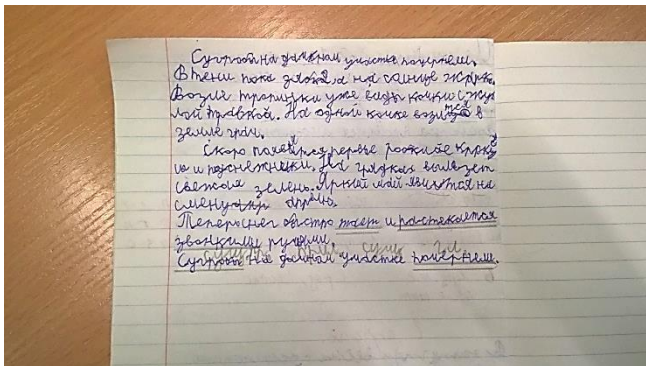 Сугробы на дачном участке почернели.
В тени пока зябко а на солнце жарко.
Возли тропинки уже виды кочки с жух
лой травкой. На одной кочке возится в
земле грач.
Скоро появятся первые рожкие крокус
ы и подснежники. На грядках вылезет
свежая зелень. Яркий май явится на
смену апрелю.
Теперь снег быстро тает и растекается
звонкими ручьями.
сущ. прил. сущ. гл.
Сугробы на дачном участке почернели.